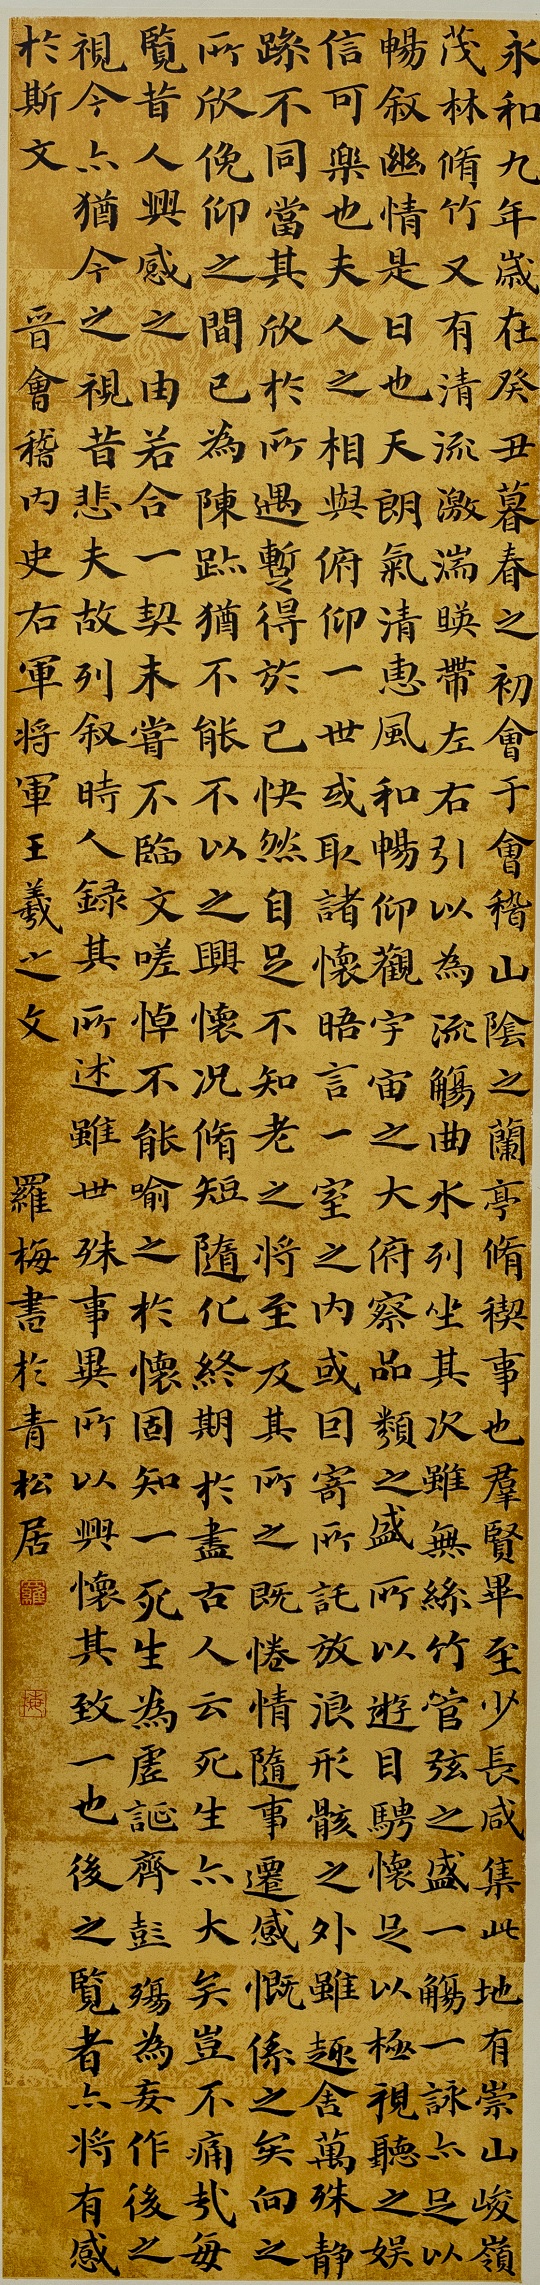 永和九年歲在癸丑暮春之初會于會稽山陰之蘭亭脩禊事也羣賢畢至少長咸集此地有崇山峻嶺
茂林脩竹又有清流激湍暎帶左右引以為流觴曲水列坐其次雖無絲竹管弦之盛一觴一詠亦足以
暢叙幽情是日也天朗氣清惠風和暢仰觀宇宙之大俯察品類之盛所以遊目騁懷足以極視聽之娱
信可樂也夫人之相與俯仰一世或取諸懷晤言一室之内或因寄所託放浪形骸之外雖趣舍萬殊静
躁不同當其欣於所遇暫得於己快然自足不知老之将至及其所之既惓情隨事遷感慨係之矣向之
所欣俛仰之間已為陳跡猶不能不以之興懷况脩短隨化終期於盡古人云死生亦大矣豈不痛哉每
覽昔人興感之由若合一契未嘗不臨文嗟悼不能喻之於懷固知一死生為虚誕齊彭殤為妄作後之
視今亦猶今之視昔悲夫故列叙時人録其所述雖世殊事異所以興懷其致一也後之覽者亦将有感
於斯文 晉會稽内史右軍将軍王羲之文 羅梅書於青松居
羅
梅